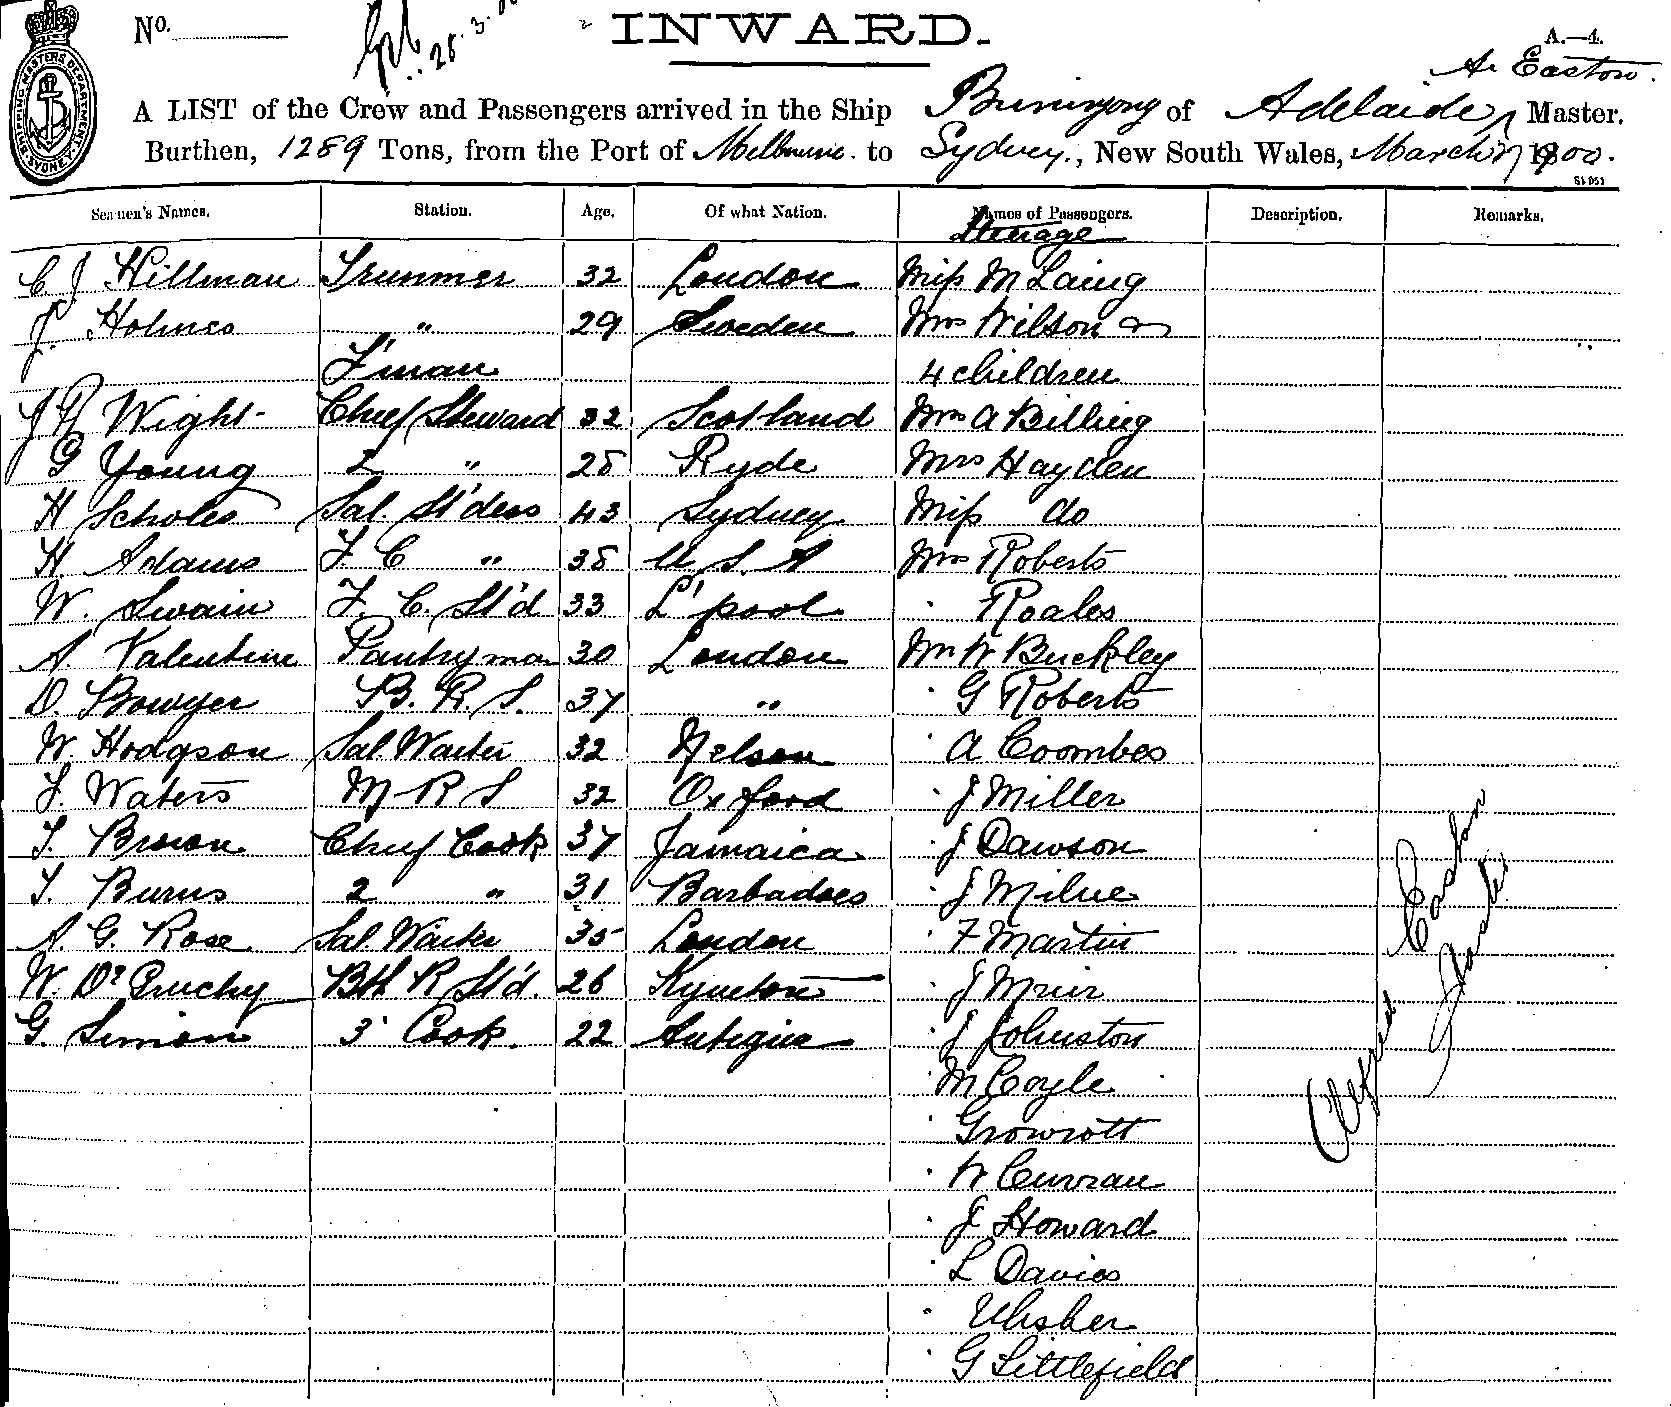 No.
INWARD.
A.—4.
A. Easton.
A LIST of the Crew and Passengers arrived in the Ship Buninyong of Adelaide, Master.
Burthen, 1289 Tons, from the Port of Melbourne to Sydney, New South Wales, March 1900.
Seamen's Names. Station. Age. Of what Nation. Names of Passengers. Description. Remarks.
Steerage
C J Hillman Trimmer 32 London Miss M Laing
J. Holmes " 29 Sweden Mrs Wilson &
F'man 4 children
J R Wight Chief Steward 32 Scotland Mrs A Billing
G Young 2 " 28 Ryde Mrs Hayden
H Scholes Sal. St'dess 43 Sydney Miss do
H Adams F. C " 38 U. S. A Mrs Roberts
W. Swain F. C. St'd 33 L'pool " Roales
A. Valentine Pantryman 30 London Mr W Buckley
D. Bowyer B. R. S. 37 " " G Roberts
W. Hodgson Sal. Waiter 32 Nelson " A Coombes
F. Waters M R S 32 Oxford " J Miller
T. Brown Chief Cook 37 Jamaica " J Dawson
T. Burns 2 " 31 Barbadoes " J Milne
A. G. Rose Sal. Waiter 35 London " F Martin
W. Bth R St'd. 26 Kyneton " J Muir
G. Simon 3 Cook. 22 Antigua " J Johnston
" M Coyle
"
" W Curran
" J Howard
" L Davies
"
" G Littlefield
Alfred Easton
Master